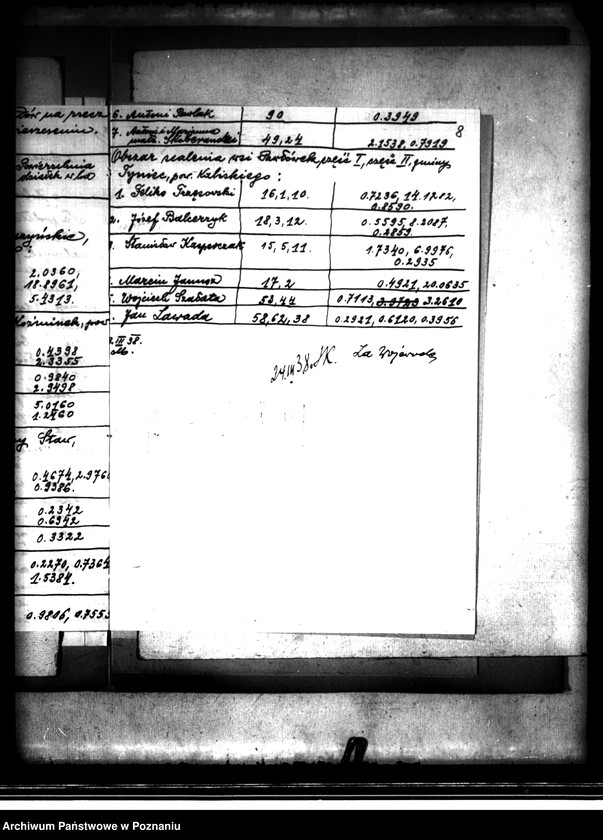 rzecz
zaszczeniu.
Powierzchnia
działek w ha
2.0360,
18.8961,
5.4313.
Koźminek, pow.
0.4398
2.3355
0.9840
2.9498
5.0160
1.2460
Staw,
0.4674, 2.976
0.9386.
0.2342
0.6942
0.3322
0.2270, 0.7364
1.5384.
0.9806, 0.755
8
6. Antoni Pawlak 90 0.3949
7. Antoni i Marjanna
małż. Skobrańscy 49,24 2.1538, 0.7919
Obszar scalenia wsi Pawłówek, część I, część II, gminy
Tyniec, pow. Kaliskiego:
1. Feliks 16,1,10. 0.7236, 14.1282,
0.8590.
2. Józef Balcerzyk 18,3,12. 0.5595, 8.2087,
0.2859.
Stanisław Kasprzak 15,5,11. 1.7340, 6.9976,
0.2935
Marcin Janusz 17,2 0.4921, 20.0635
Wojciech Szałata 53,44 0.7113, 3.2610
Jan Lawada 58,62,38 0.2921, 0.6120, 0.3956
III 38.
24.III 38. Za Wojewodę
Archiwum Państwowe w Poznaniu